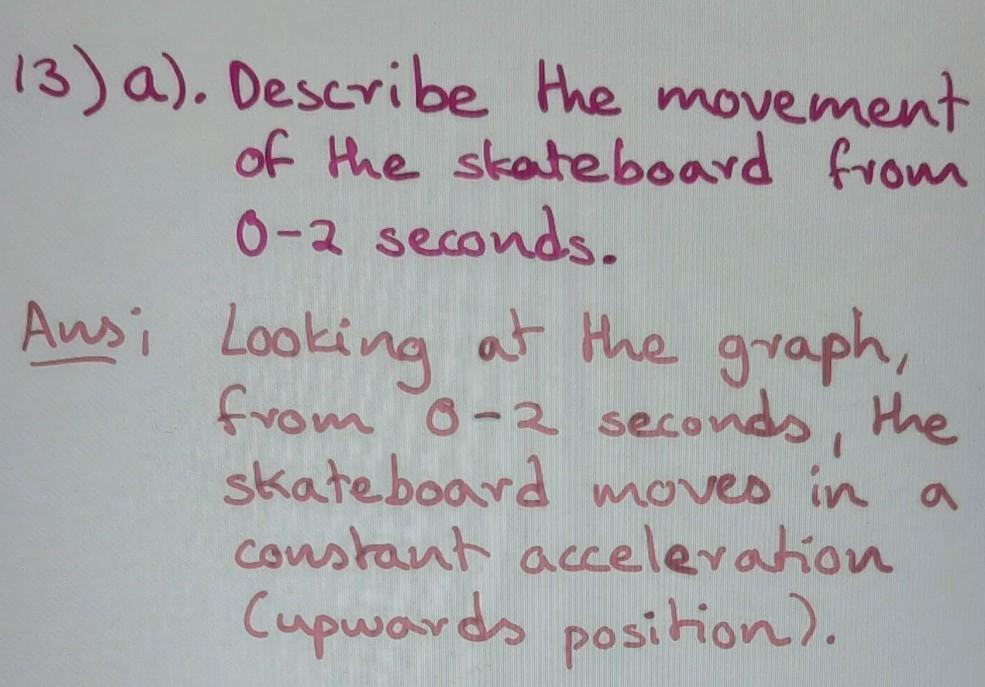 13) a). Describe the movement
of the skateboard from
0-2 seconds.
Ans; Looking at the graph,
from 0-2 seconds, the
skateboard moves in a
constant acceleration
(upwards position).